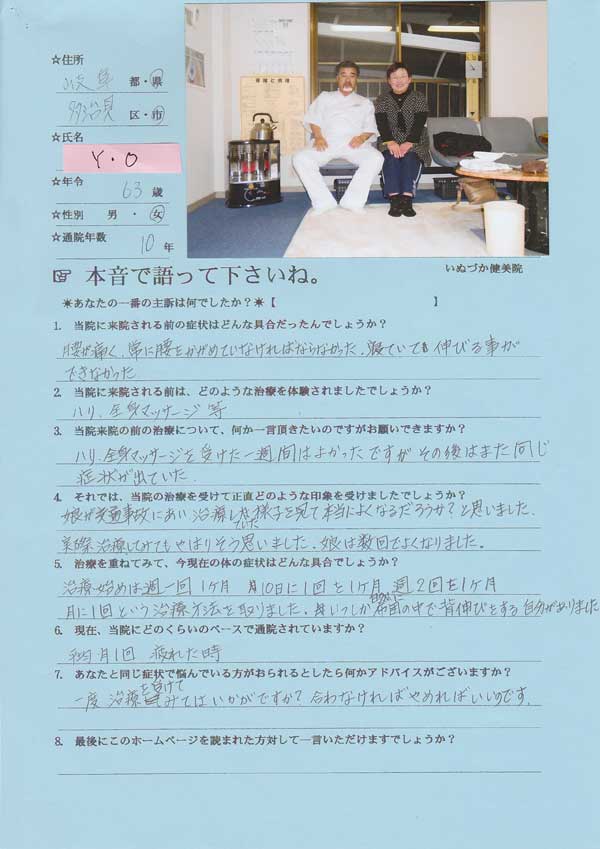 ☆住所
岐阜 都・県
多治見 区・市
☆氏名
Y・O
☆年令 63 歳
☆性別 男・女
☆通院年数 10 年
☞ 本音で語って下さいね。
いぬづか健美院
✳あなたの一番の主訴は何でしたか？✳【 】
1. 当院に来院される前の症状はどんな具合だったんでしょうか？
腰が痛く、常に腰をかがめていなければならなかった。寝ていても伸びる事が
できなかった
2. 当院に来院される前は、どのような治療を体験されましたでしょうか？
ハリ、全身マッサージ等
3. 当院来院の前の治療について、何か一言頂きたいのですがお願いできますか？
ハリ、全身マッサージを受けた一週間はよかったですがその後はまた同じ
症状が出ていた。
4. それでは、当院の治療を受けて正直どのような印象を受けましたでしょうか？
娘が交通事故にあい治療していた様子を見て本当によくなるだろうか？と思いました。
実際治療してみてもやはりそう思いました。娘は数回でよくなりました。
5. 治療を重ねてみて、今現在の体の症状はどんな具合でしょうか？
治療始めは週一回1ヶ月 月10日に1回を1ヶ月 週2回を1ヶ月
月に1回という治療方法を取りました。いつしか自然に布団の中で背伸びをする自分がありました
6. 現在、当院にどのくらいのペースで通院されていますか？
月1回 疲れた時
7. あなたと同じ症状で悩んでいる方がおられるとしたら何かアドバイスがございますか？
一度治療を受けてみてはいかがですか？合わなければやめればいいのです。
8. 最後にこのホームページを読まれた方対して一言いただけますでしょうか？